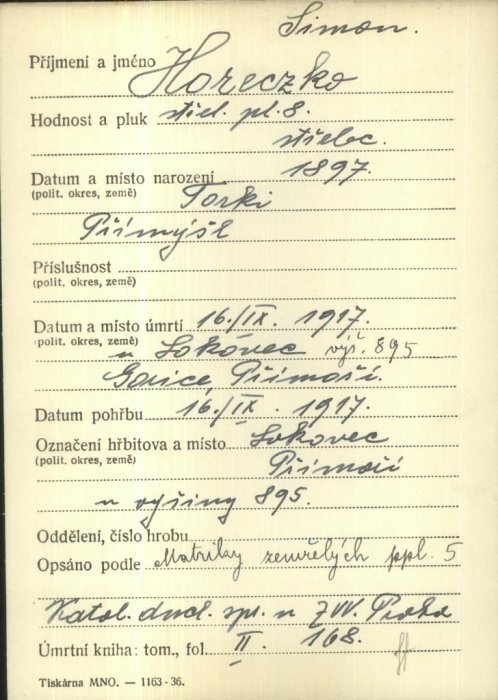 Simon.
Příjmení a jméno Horeczko
Hodnost a pluk střel. pl. 8.
střelec.
Datum a místo narození 1897.
(polit. okres, země) Torki
Přímyšl
Příslušnost
(polit. okres, země)
Datum a místo úmrtí 16./IX. 1917.
(polit. okres, země) u Lokovec výš. 895
Gorice, Přímoří.
Datum pohřbu 16./IX. 1917.
Označení hřbitova a místo Lokovec
(polit. okres, země) Přímoří
u výšiny 895.
Oddělení, číslo hrobu
Opsáno podle Matriky zemřelých ppl. 5
Katol. duch. spr. u ZVV. Praha
Úmrtní kniha: tom., fol. II. 168.
Tiskárna MNO. — 1163-36.